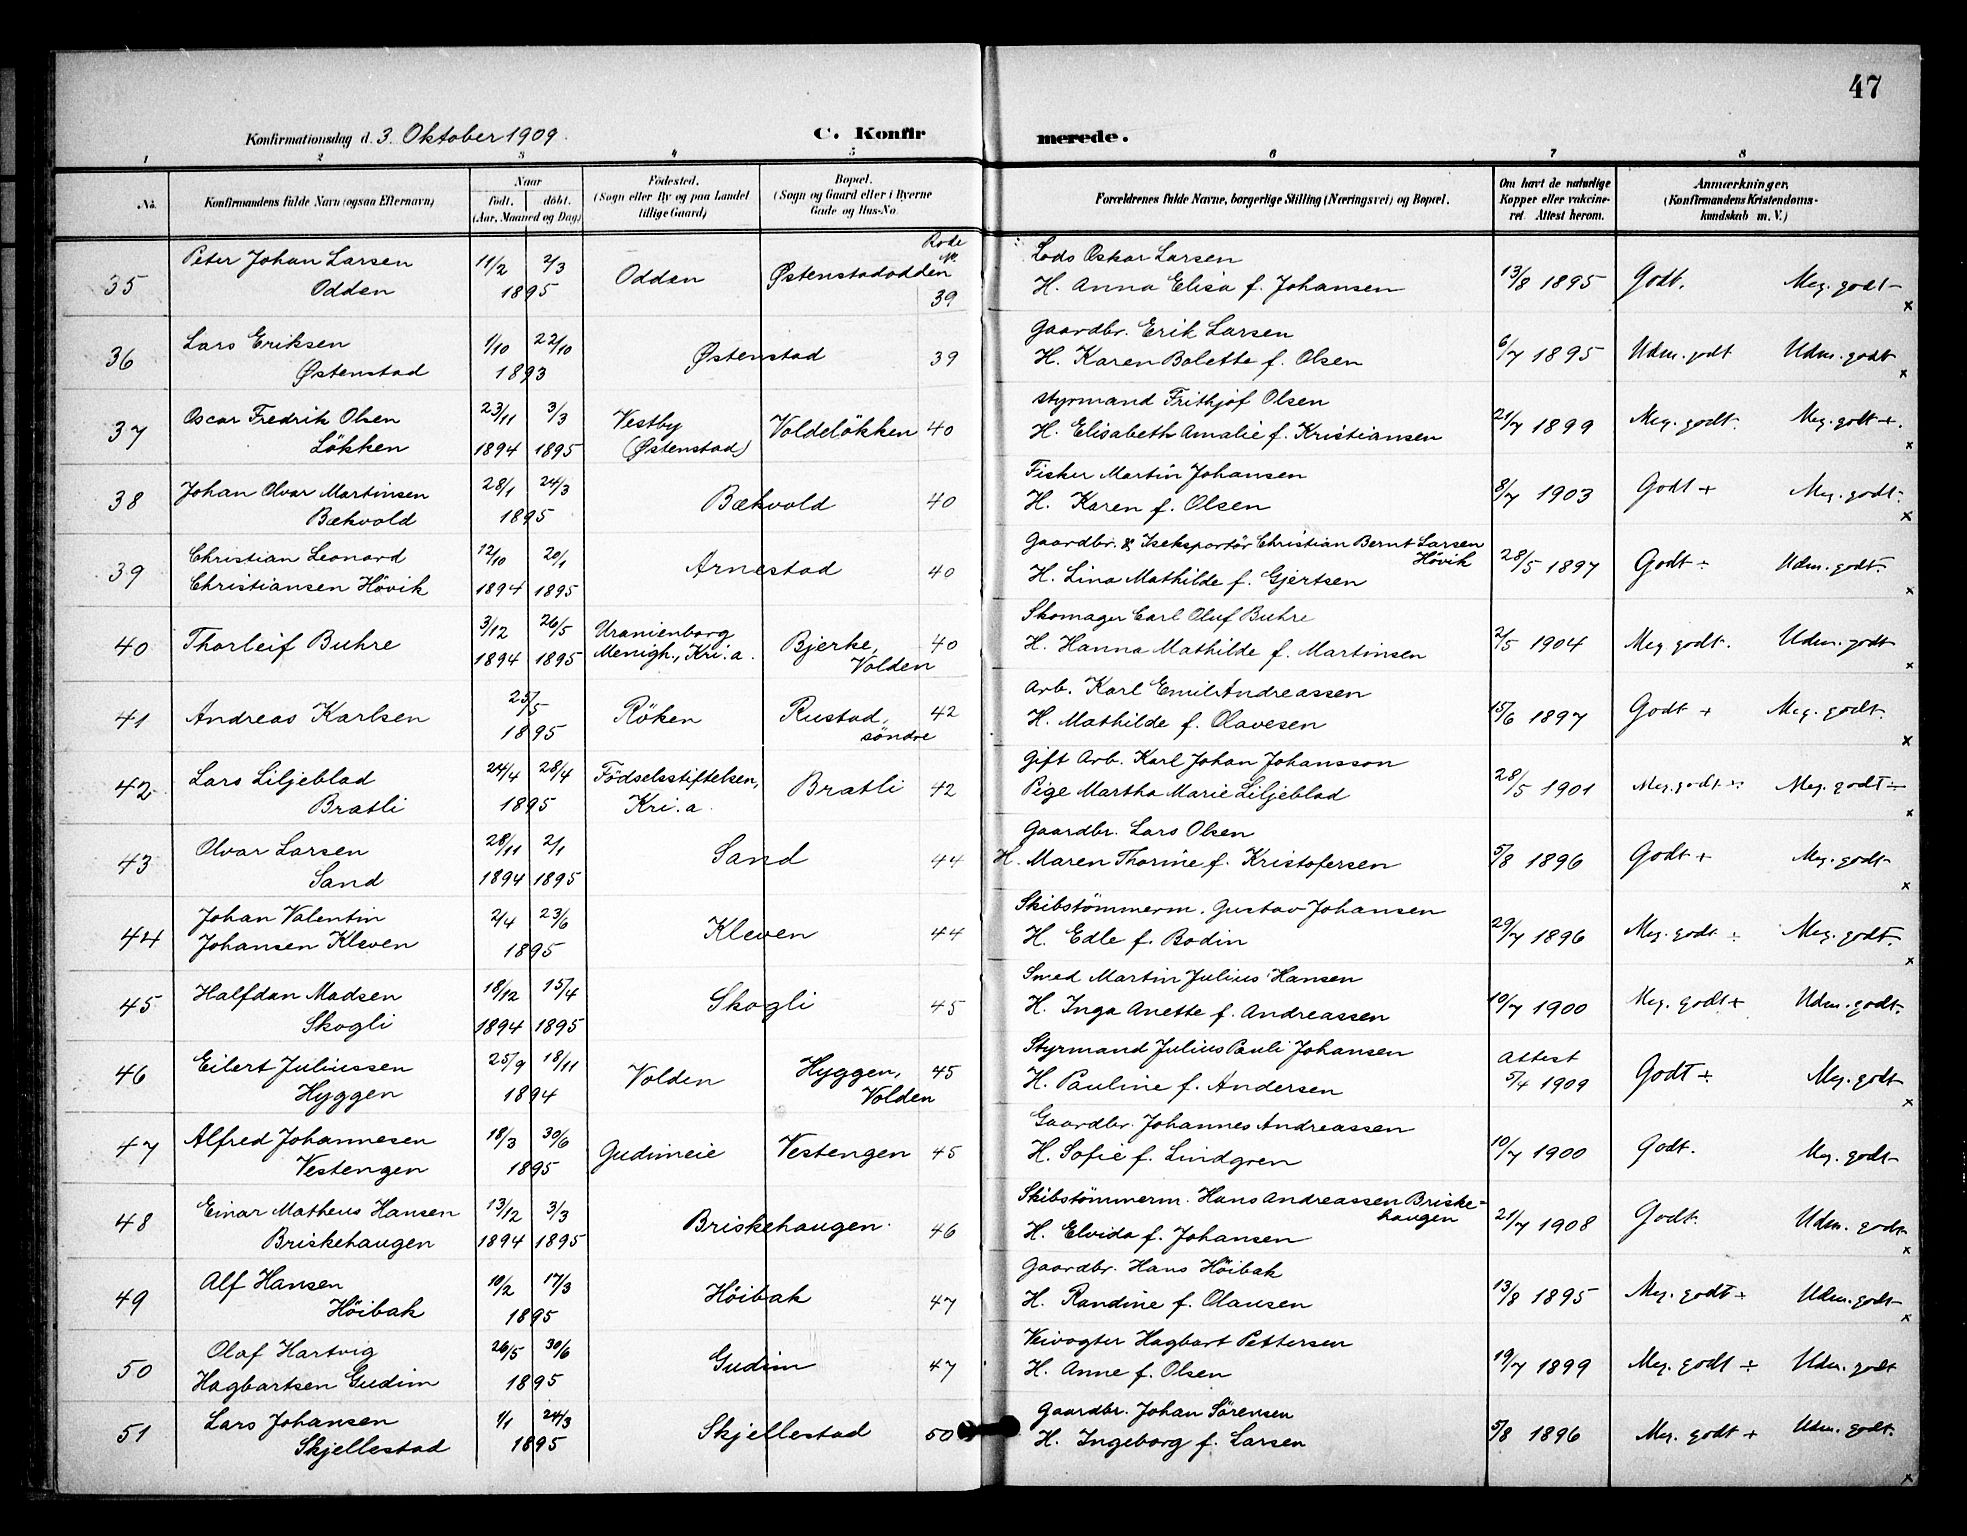 47
Konfirmationsdag d. 3. Oktober 1909.
C. Konfirmerede.
1 2 3 4 5 6 7 8
No. Konfirmandens fulde Navn (ogsaa Efternavn) Naar født. døbt. (Aar, Maaned og Dag) Fødested. (Sogn eller By og paa Landet tillige Gaard) Bopæl. (Sogn og Gaard eller i Byerne Gade og Hus-No. Forældrenes fulde Navne, borgerlige Stilling (Næringsvei) og Bopæl. Om havt de naturlige Kopper eller vakcineret. Attest herom. Anmærkninger. (Konfirmandens Kristendomskundskab m. V.)
Rode No.
35 Peter Johan Larsen Odden 11/2 2/3 1895 Odden Østenstadodden 39 Lods Oskar Larsen H. Anna Elisa f. Johansen 13/8 1895 Godt. Meg. godt x
36 Lars Eriksen Østenstad 1/10 22/10 1893 Østenstad 39 Gaardbr. Erik Larsen H. Karen Bolette f. Olsen 6/7 1895 Udm. godt Udm. godt x
37 Oscar Fredrik Olsen Løkken 23/11 1894 3/3 1895 Vestby (Østenstad) Voldeløkken 40 Styrmand Frithjof Olsen H. Elisabeth Amalie f. Kristiansen 21/7 1899 Meg. godt. Meg. godt +. x
38 Johan Olvar Martinsen Bækvold 28/1 24/3 1895 Bækvold 40 Fisker Martin Johansen H. Karen f. Olsen 8/7 1903 Godt + Meg. godt x
39 Christian Leonard Christiansen Høvik 12/10 1894 20/1 1895 Arnestad 40 Gaardbr. & Iseksportør Christian Bernt Larsen Høvik H. Lina Mathilde f. Gjertsen 28/5 1897 Godt ÷ Udm. godt. x
40 Thorleif Buhre 3/12 1894 26/5 1895 Uranienborg Menigh., Kri.a. Bjerke, Volden 40 Skomager Carl Oluf Buhre H. Hanna Mathilde f. Martinsen 2/5 1904 Meg. godt. Udm. godt x
41 Andreas Karlsen 25/5 1895 Røken Rustad, søndre 42 Arb. Karl Emil Andreassen H. Mathilde f. Olavesen 15/6 1897 Godt + Meg. godt. x
42 Lars Liljeblad Bratli 24/4 28/4 1895 Fødselsstiftelsen, Kri.a. Bratli 42 Gift Arb. Karl Johan Johansson Pige Martha Marie Liljeblad 28/5 1901 Meg. godt ÷ Meg. godt ÷ x
43 Olvar Larsen Sand 28/11 1894 2/1 1895 Sand 44 Gaardbr. Lars Olsen H. Maren Thorine f. Kristofersen 5/8 1896 Godt + Meg. godt x
44 Johan Valentin Johansen Kleven 2/4 23/6 1895 Kleven 44 Skibstømmerm. Gustav Johansen H. Edle f. Bodin 29/7 1896 Meg. godt ÷ Meg. godt. x
45 Halfdan Madsen Skogli 18/12 1894 15/4 1895 Skogli 45 Smed Martin Julius Hansen H. Inga Anette f. Andreassen 10/7 1900 Meg. godt + Udm. godt.
46 Eilert Juliussen Hyggen 25/9 18/11 1894 Volden Hyggen, Volden 45 Styrmand Julius Pauli Johansen H. Pauline f. Andersen Attest 5/4 1909 Godt ÷ Meg. godt x
47 Alfred Johannesen Vestengen 18/3 30/6 1895 Gudimeie Vestengen 45 Gaardbr. Johannes Andreassen H. Sofie f. Lindgren 10/7 1900 Godt. Meg. godt
48 Einar Matheus Hansen Briskehaugen 13/12 1894 3/3 1895 Briskehaugen. 46 Skibstømmerm. Hans Andreassen Briskehaugen H. Elvida f. Johansen 21/7 1908 Godt. Udm. godt x
49 Alf Hansen Høibak 10/2 17/3 1895 Høibak 47 Gaardbr. Hans Høibak H. Randine f. Olausen 13/8 1895 Meg. godt ÷ Udm. godt x
50 Olaf Hartvig Hagbartsen Gudim 26/5 30/6 1895 Gudim 47 Veivogter Hagbart Pettersen H. Anne f. Olsen 19/7 1899 Meg. godt ÷ Udm. godt
51 Lars Johansen Skjellestad 1/1 24/3 1895 Skjellestad 50 Gaardbr. Johan Sørensen H. Ingeborg f. Larsen 5/8 1896 Meg. godt + Udm. godt. x